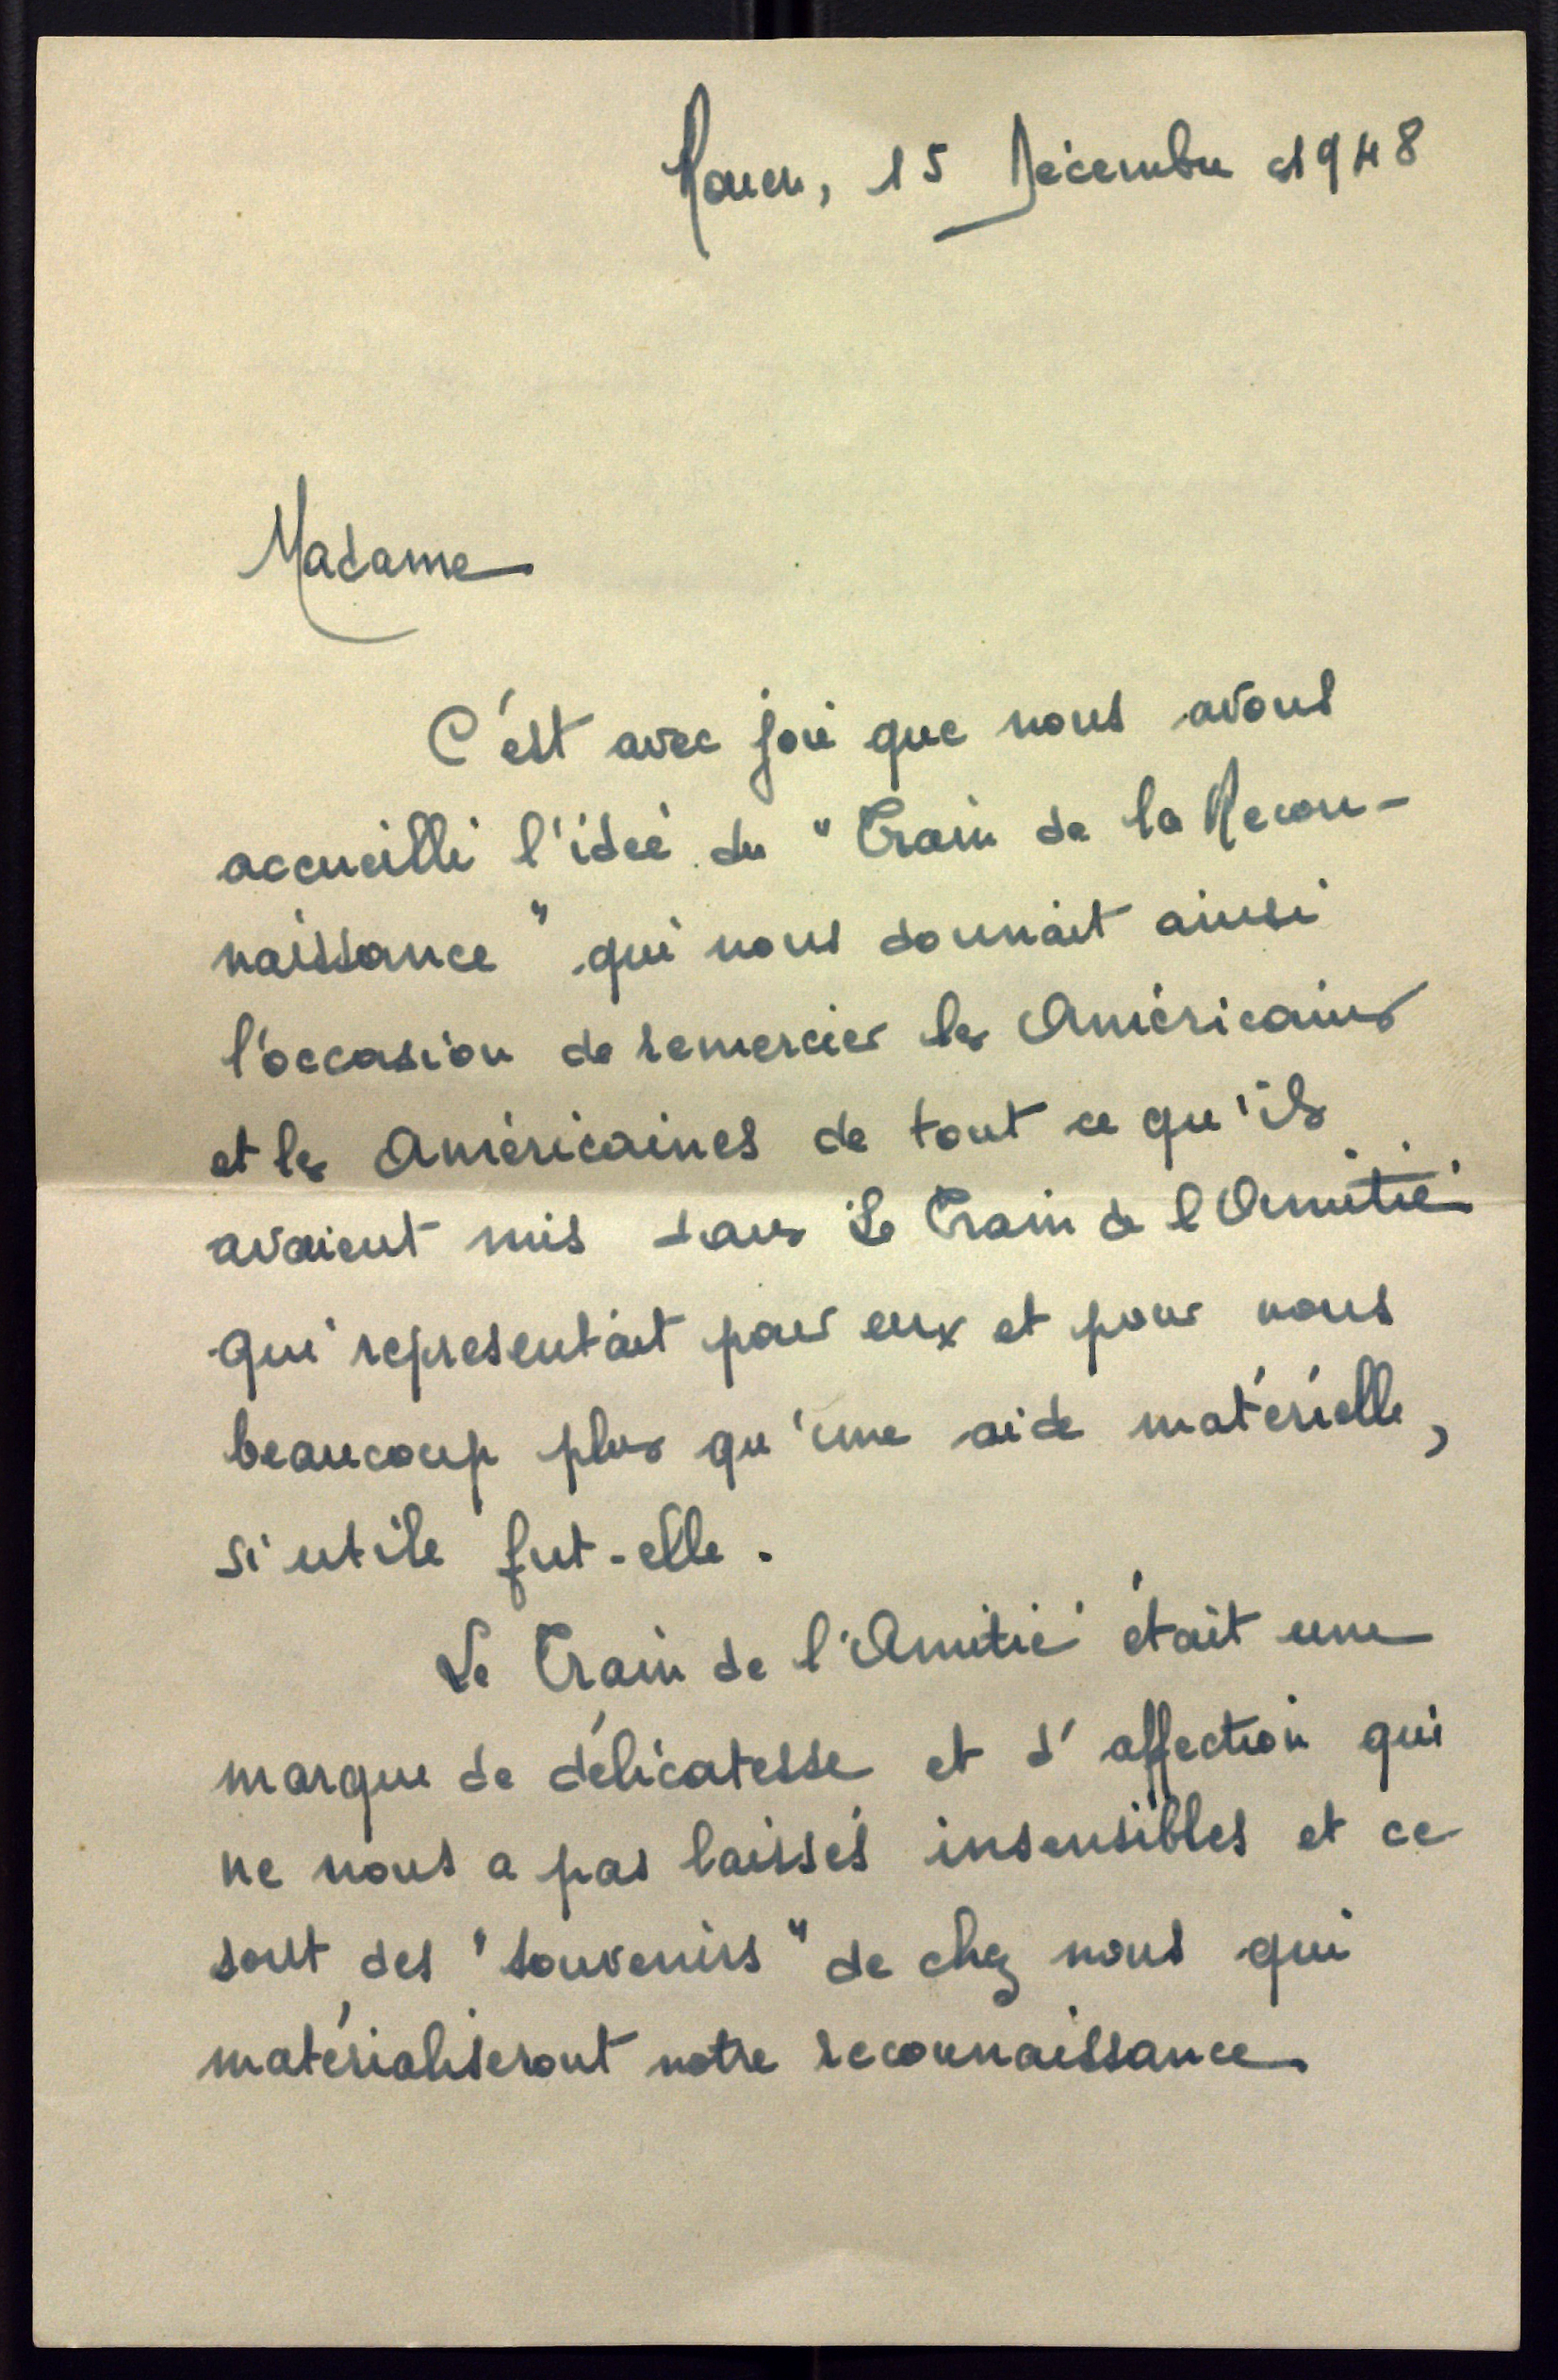 Rouen, 15 Décembre 1948
Madame
C'est avec joie que nous avons
accueilli l'idée du "Train de la Recon-
naissance" qui nous donnait ainsi
l'occasion de remercier les Américains
et les Américaines de tout ce qu'ils
avaient mis dans le Train de l'Amitié
qui representait pour eux et pour nous
beaucoup plus qu'une aide matérielle,
si utile fut-elle.
Le Train de l'Amitié était une
marque de délicatesse et d'affection qui
ne nous a pas laissés insensibles et ce
sont des "souvenirs" de chez nous qui
matérialiseront notre reconnaissance